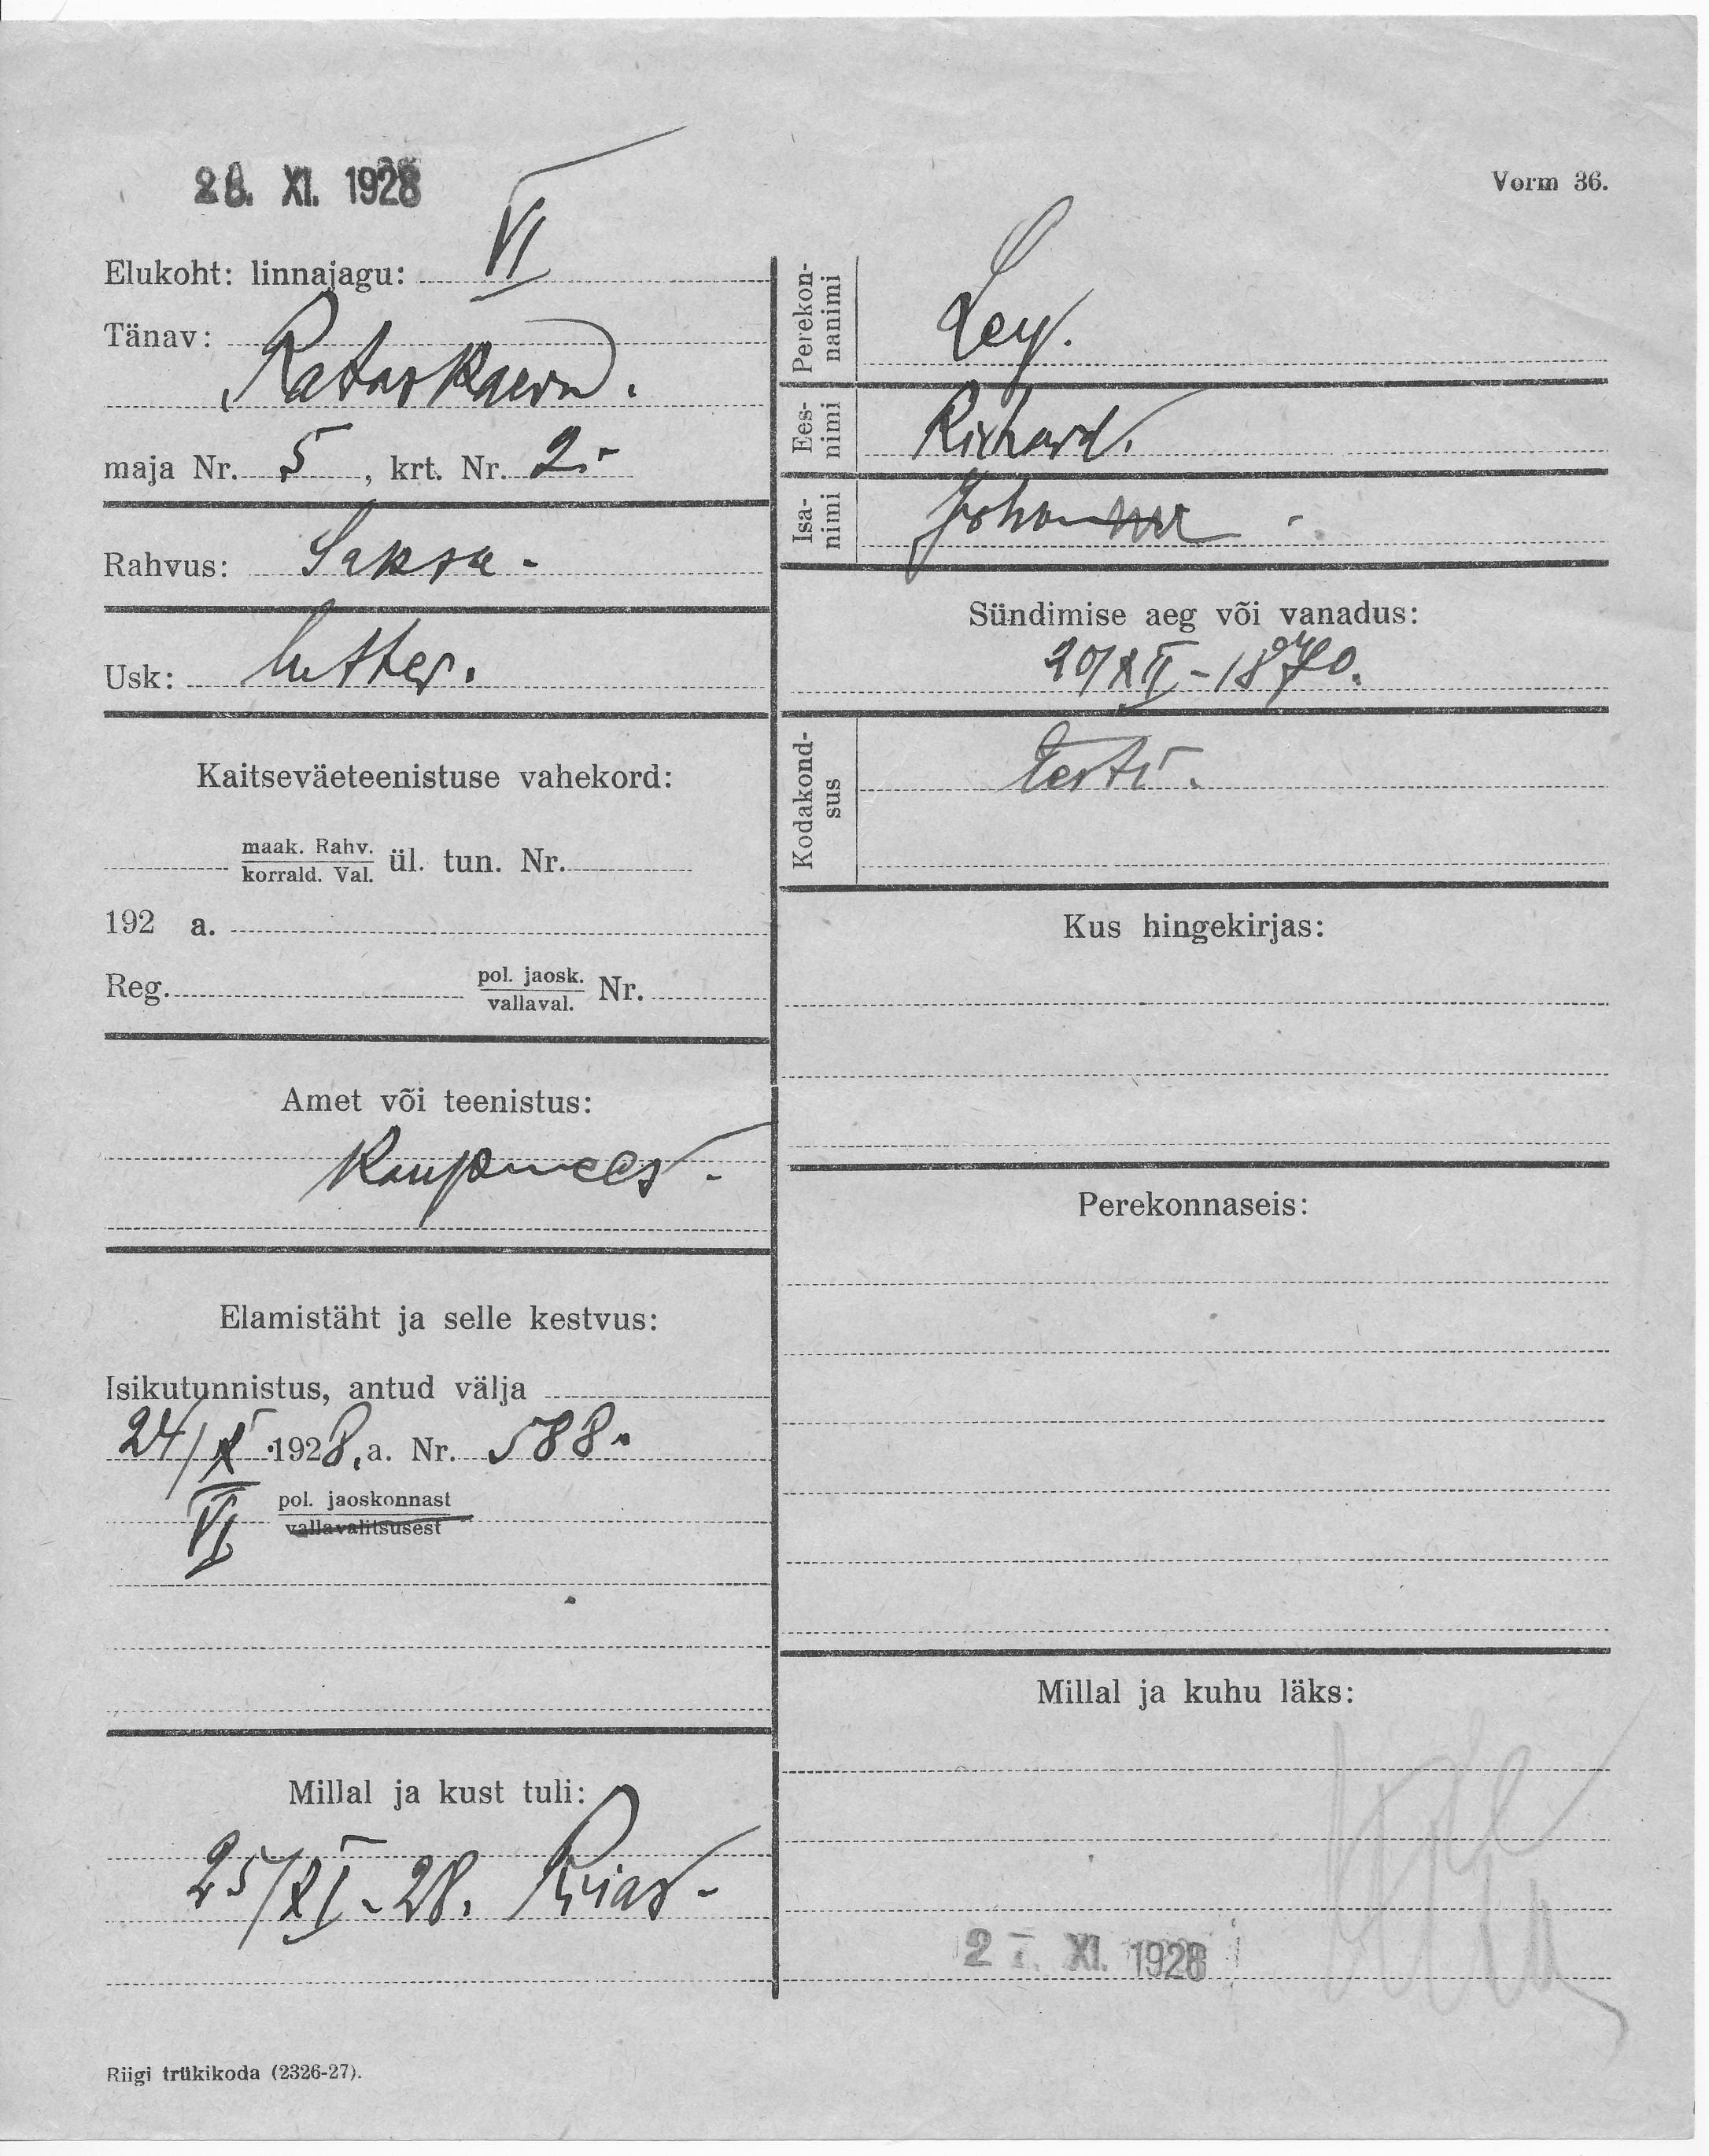 28. XI. 1928
Vorm 36.
Elukoht: linnajagu: VI
Tänav:
Rataskaevu.
maja Nr. 5, krt. Nr. 2.-
Rahvus: Saksa -
Usk: luther.
Kaitseväeteenistuse vahekord:
maak. Rahv.
korrald. Val. ül. tun. Nr.
192 a.
Reg. pol. jaosk.
vallaval. Nr.
Amet või teenistus:
Kaupmees -
Elamistäht ja selle kestvus:
Isikutunnistus, antud välja
24/X 1928, a. Nr. 588.
VI pol. jaoskonnast
vallavalitsusest
Millal ja kust tuli:
25/XI - 28.
Riigi trükikoda (2326-27).
Perekon-
nanimi
Ley.
Ees-
nimi
Richard.
Isa-
nimi
Sündimise aeg või vanadus:
20/XII - 1870.
Kodakond-
sus
Eesti.
Kus hingekirjas:
Perekonnaseis:
Millal ja kuhu läks:
XI. 1928